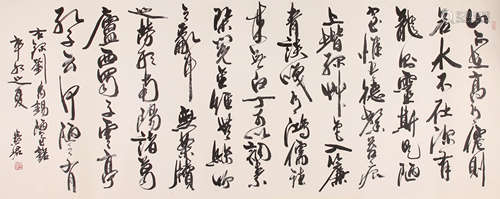 山不在高有僊則
名水不在深有
龍則靈斯是陋
室惟吾德馨苔痕
上堦綠草色入簾
青談笑有鴻儒往
來無白丁可以調素
琴閱金經無絲竹
之亂耳無案牘
之勞形南陽諸葛
廬西蜀子雲亭
孔子云何陋之有
右錄劉禹錫陋室銘
之夏